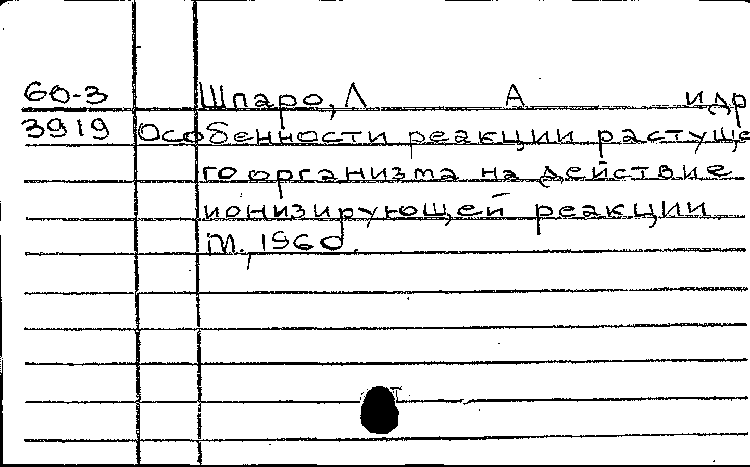 60-3 Шпаро, Л А и др
3919 Особенности реакции растуще
го организма на действие
ионизирующей реакции
М., 1960.